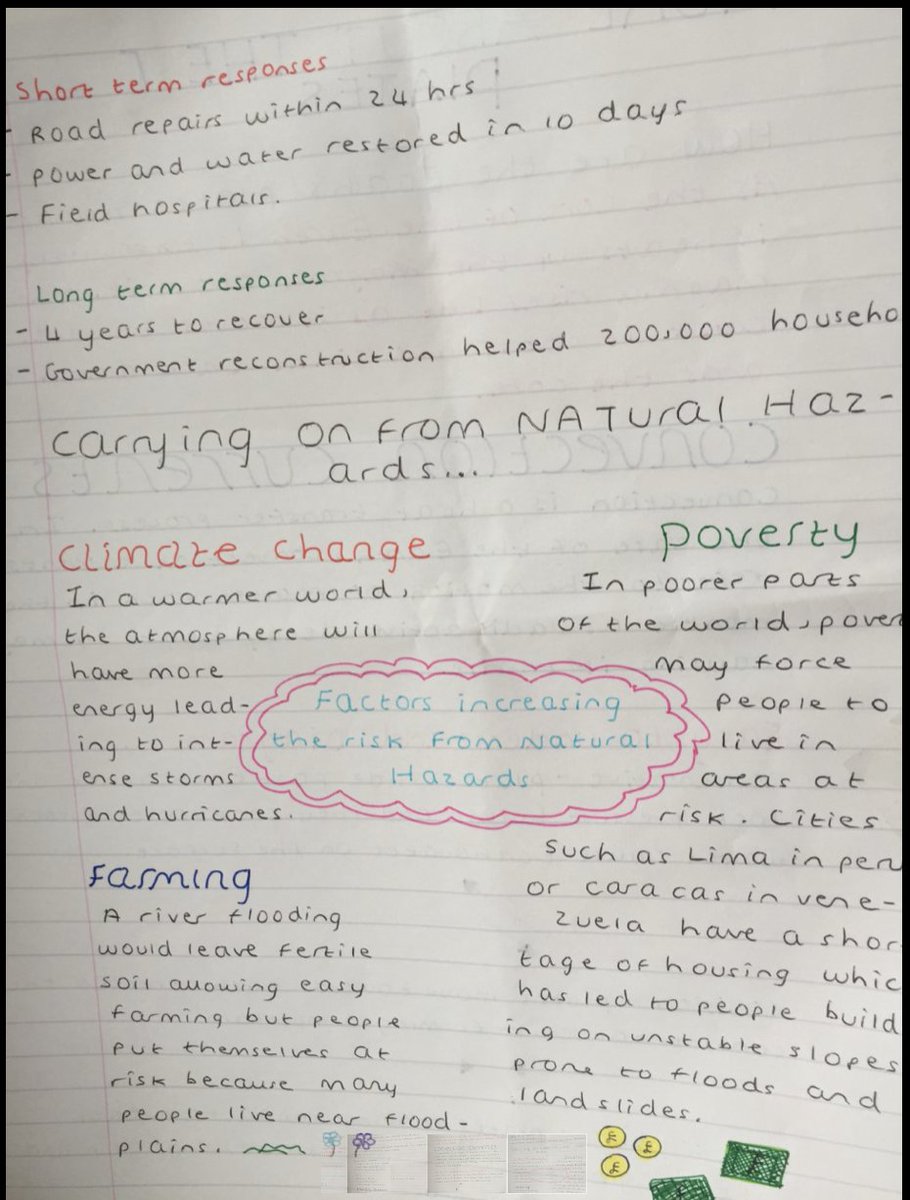 Short term responses
- Road repairs within 24 hrs
- power and water restored in 10 days
- Field hospitals.
Long term responses
- 4 years to recover
- Government reconstruction helped 200,000 househo
Carrying on from NATUral Haz-
ards...
Climate change
In a warmer world,
the atmosphere will
have more
energy lead-
ing to int-
ense storms
and hurricanes.
Factors increasing
the risk from Natural
Hazards
Poverty
In poorer parts
of the world, pover
may force
people to
live in
areas at
risk. Cities
such as Lima in peru
or caracas in vene-
zuela have a shor
tage of housing whic
has led to people build
ing on unstable slopes
prone to floods and
landslides.
Farming
A river flooding
would leave fertile
soil allowing easy
farming but people
put themselves at
risk because many
people live near flood-
plains.
£
£
£